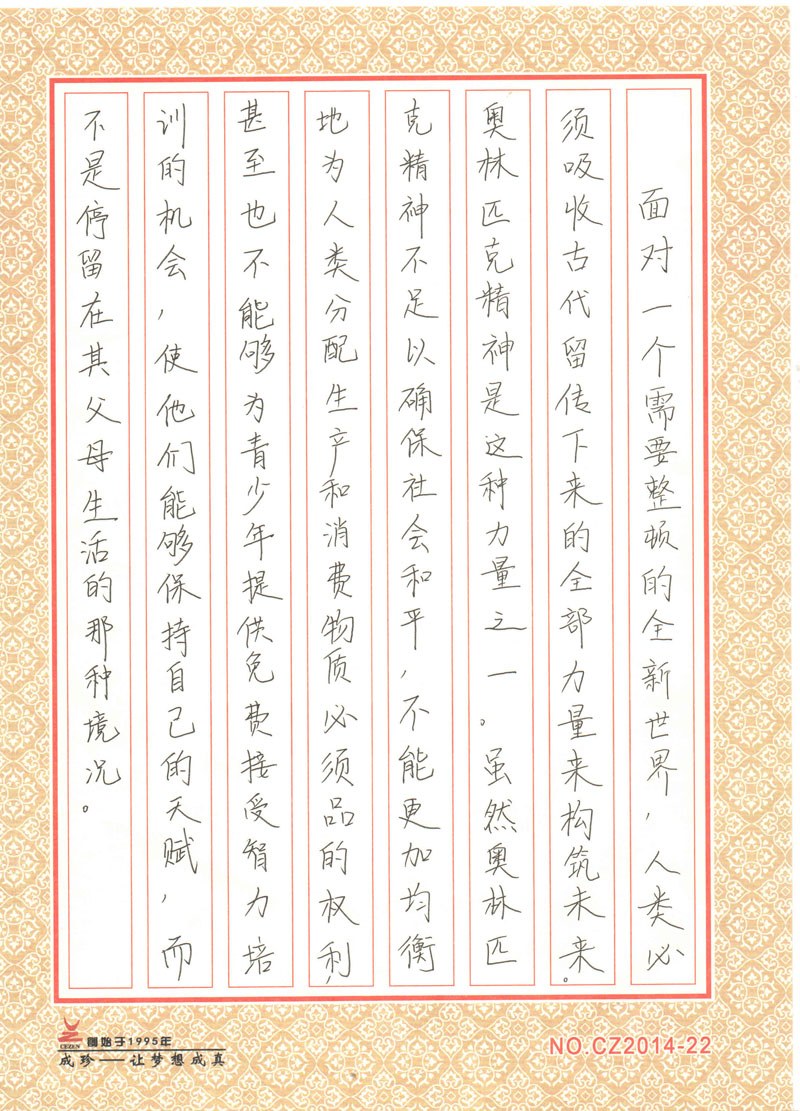 面对一个需要整顿的全新世界,人类必
须吸收古代留传下来的全部力量来构筑未来。
奥林匹克精神是这种力量之一。虽然奥林匹
克精神不足以确保社会和平,不能更加均衡
地为人类分配生产和消费物质必须品的权利,
甚至也不能够为青少年提供免费接受智力培
训的机会,使他们能够保持自己的天赋,而
不是停留在其父母生活的那种境况。
CEZEN
創始于1995年
成珍——让梦想成真
NO.CZ2014-22